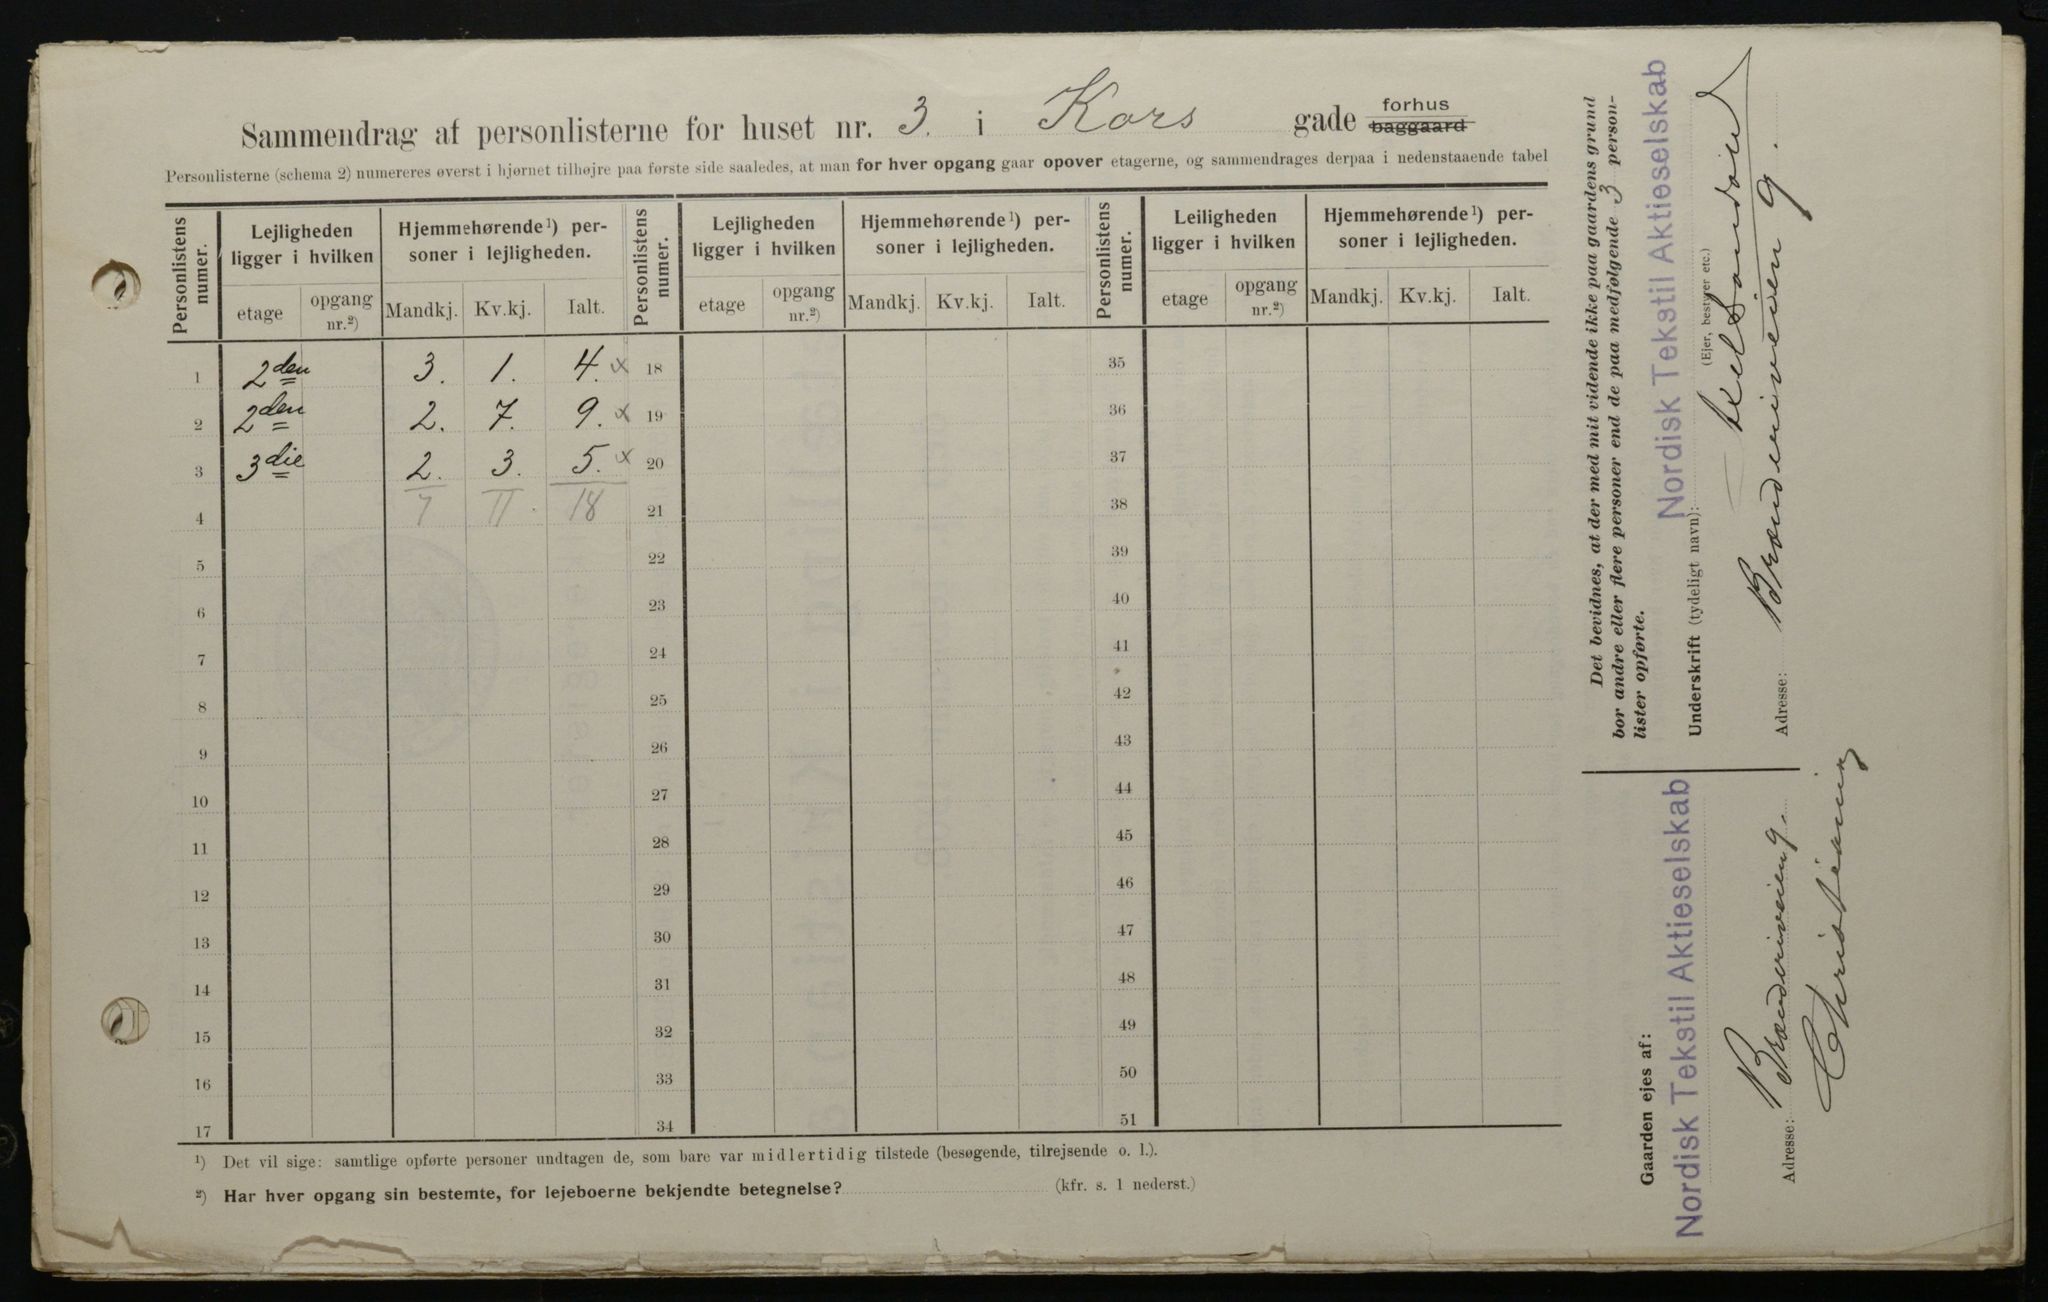 Sammendrag af personlisterne for huset nr. 3. i Kors gade forhus baggaard
Personlisterne (schema 2) numereres øverst i hjørnet tilhøjre paa første side saaledes, at man for hver opgang gaar opover etagerne, og sammendrages derpaa i nedenstaaende tabel
Personlistens numer. Lejligheden ligger i hvilken Hjemmehørende¹) personer i lejligheden. Personlistens numer. Lejligheden ligger i hvilken Hjemmehørende¹) personer i lejligheden. Personlistens numer. Leiligheden ligger i hvilken Hjemmehørende¹) personer i lejligheden.
etage opgang nr.²) Mandkj. Kv.kj. Ialt. etage opgang nr.²) Mandkj. Kv.kj. Ialt. etage opgang nr.²) Mandkj. Kv.kj. Ialt.
1 2den 3. 1. 4. x 18 35
2 2den 2. 7. 9. x 19 36
3 3die 2. 3. 5. x 20 37
4 7 11 18 21 38
5 22 39
6 23 40
7 24 41
8 25 42
9 26 43
10 27 44
11 28 45
12 29 46
13 30 47
14 31 48
15 32 49
16 33 50
17 34 51
¹) Det vil sige: samtlige opførte personer undtagen de, som bare var midlertidig tilstede (besøgende, tilrejsende o. l.).
²) Har hver opgang sin bestemte, for lejeboerne bekjendte betegnelse? (kfr. s. 1 nederst.)
Det bevidnes, at der med mit vidende ikke paa gaardens grund
bor andre eller flere personer end de paa medfølgende 3 person-
lister opførte.
Nordisk Tekstil Aktieselskab
Underskrift (tydeligt navn):
(Ejer, bestyrer etc.)
Adresse: Brænneriveien 9.
Gaarden ejes af:
Nordisk Tekstil Aktieselskab
Adresse: Brænneriveien 9.
Christiania